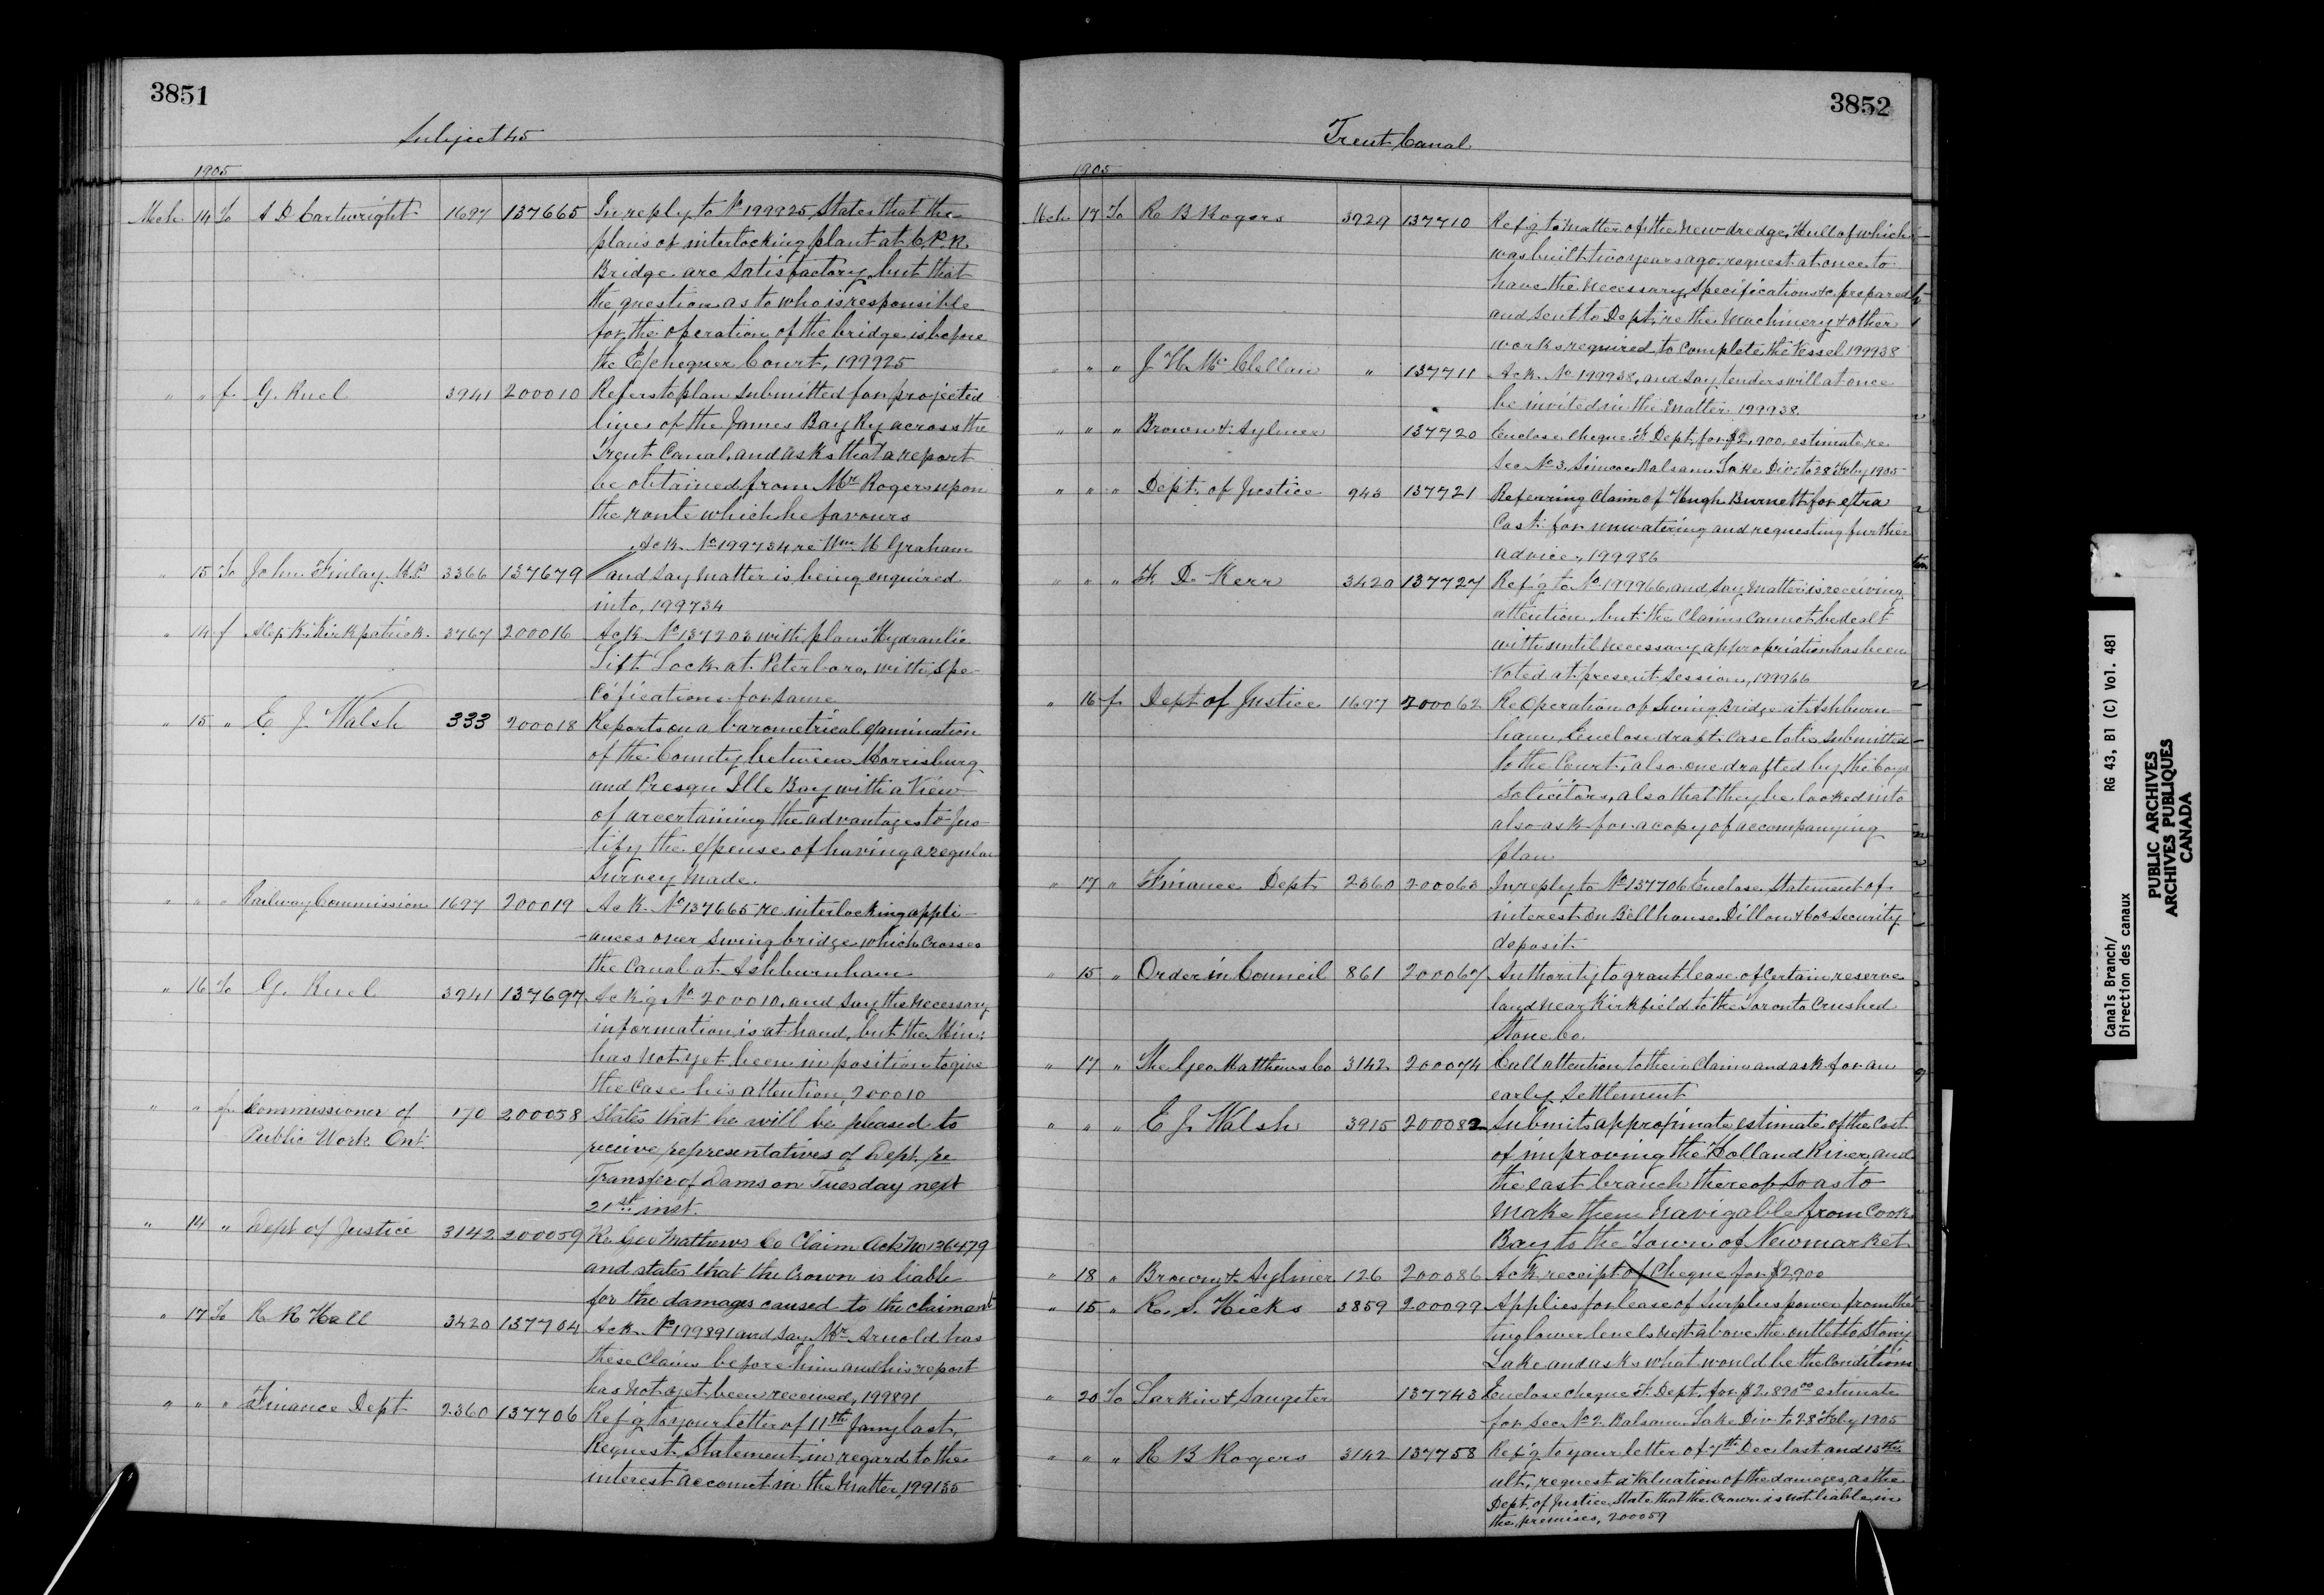 3851
Subject 45
1905
Mch. 14 To A D Cartwright 1697 137665 In reply to No 199925, States that the
plans of interlocking plant at C.P.R.
Bridge are satisfactory, but that
the question as to who is responsible
for the operation of the bridge is before
the Exchequer Court, 199925
" " f. G. Ruel 3941 200010 Refers to plan submitted for projected
lines of the James Bay Ry across the
Trent Canal, and asks that a report
be obtained from Mr Rogers upon
the route which he favours
" 15 To John Finlay M.P. 3366 137679 Ack. No 199734 re Wm. H Graham
and say matter is being enquired
into, 199734
" 14 f Kirkpatrick 3767 200016 Ack No 137203 with plans Hydraulic
Lift Lock at Peterboro, with Spe-
cifications for same
" 15 " E. J. Walsh 333 200018 Reports on a barometrical examination
of the County between Morrisburg
and Presqu Ille Bay with a View
of arcertaining the advantages to jus-
tify the expense of having a regular
Survey made.
" " " Railway Commission 1697 200019 Ack. No 137665 re interlocking appli-
-ances over Swing bridge which Crosses
the Canal at Ashburnham
" 16 To G. Ruel 3941 137697 Ack'g No 200010, and say the necessary
information is at hand, but the Min:
has not yet been in position to give
the Case his attention, 200010
" " f. Commissioner of 170 200058 States that he will be pleased to
Public Work Ont. receive representatives of Dept. re
Transfer of Dams on Tuesday next
21st inst.
" 14 " Dept of Justice 3142 200059 Re Geo Mathews Co Claim Ack No 136479
and states that the Crown is liable
for the damages caused to the claiment
" 17 To R R Hall 3420 137704 Ack No 199891 and say Mr Arnold has
these Claims before him and his report
has not yet been received, 199891
" " " Finance Dept 2360 137706 Ref'g to your letter of 11th Jany last,
Request Statement in regard to the
interest account in the Matter, 199135
3852
Trent Canal
1905
Mch 17 To R B Rogers 3929 137710 Ref'g to Matter of the New dredge, Hull of which
was built two years ago, request at once to
have the necessary, Specifications &c. prepared
and sent to Dept, re the Machinery & other
works required to complete the Vessel 199938
" " " J H McClellan " 137711 Ack. No 199938, and say tenders will at once
be invited in the Matter 199938.
" " " Brown & Aylmer 137720 Enclose Cheque F. Dept. for $2,900 estimate, re
Sec No 3, Simcoe Balsam Lake Div. to 28 Feby 1905
" " " Dept. of Justice 943 137721 Referring Claim of Hugh Burnett for extra
Cost for unwatering and requesting further
advice, 199986
" " " F. D. Kerr 3420 137727 Ref'g to No 199966, and say matter is receiving
attention, but the Claims Cannot be dealt
with until necessary appropriation has been
Voted at present Session, 199966
" 16 f. Dept of Justice 1697 200062 Re Operation of Swing Bridge at Ashburn
ham, Enclose draft Case to be Submitted
to the Court, also one drafted by the Coys
Solicitors, also that they be looked into
also ask for a copy of accompanying
plan
" 17 " Finance Dept. 2360 200063 In reply to No 137706 Enclose Statement of
interest on Bellhouse Dillon & Cos Security
deposit.
" 15 " Order in Council 861 200067 Authority to grant lease of Certain reserve
land near Kirkfield to the Toronto Crushed
Stone Co.
" 17 " The Geo. Matthews Co 3142 200074 Call attention to their Claim and ask for an
early Settlement
" " " E J. Walsh 3915 200082 Submits approximate estimate of the Cost
of improving the Holland River, and
the east branch thereof So as to
Make them Navigable from Cook
Bay to the Town of Newmarket
" 18 " Brown & Aylmer 126 200086 Ack receipt of Cheque for $2,900
" 15 " R. S. Hicks 3859 200099 Applies for lease of Surplus power from the
two lower levels next above the outlet to Stony
Lake and asks what would be the Conditions
" 20 To Larkin & Sangster 137743 Enclose Cheque F. Dept. for $2,890.00 estimate
for Sec No 2 Balsam Lake Div. to 28 Feby 1905
" " " R B Rogers 3142 137758 Ref'g to your letter of 7th Dec last and 13th
ult, request a Valuation of the damages, as the
Dept. of Justice State that the Crown is not liable in
the premises, 200059
Canals Branch/ RG 43, B1 (C) Vol. 481
Direction des canaux
PUBLIC ARCHIVES
ARCHIVES PUBLIQUES
CANADA